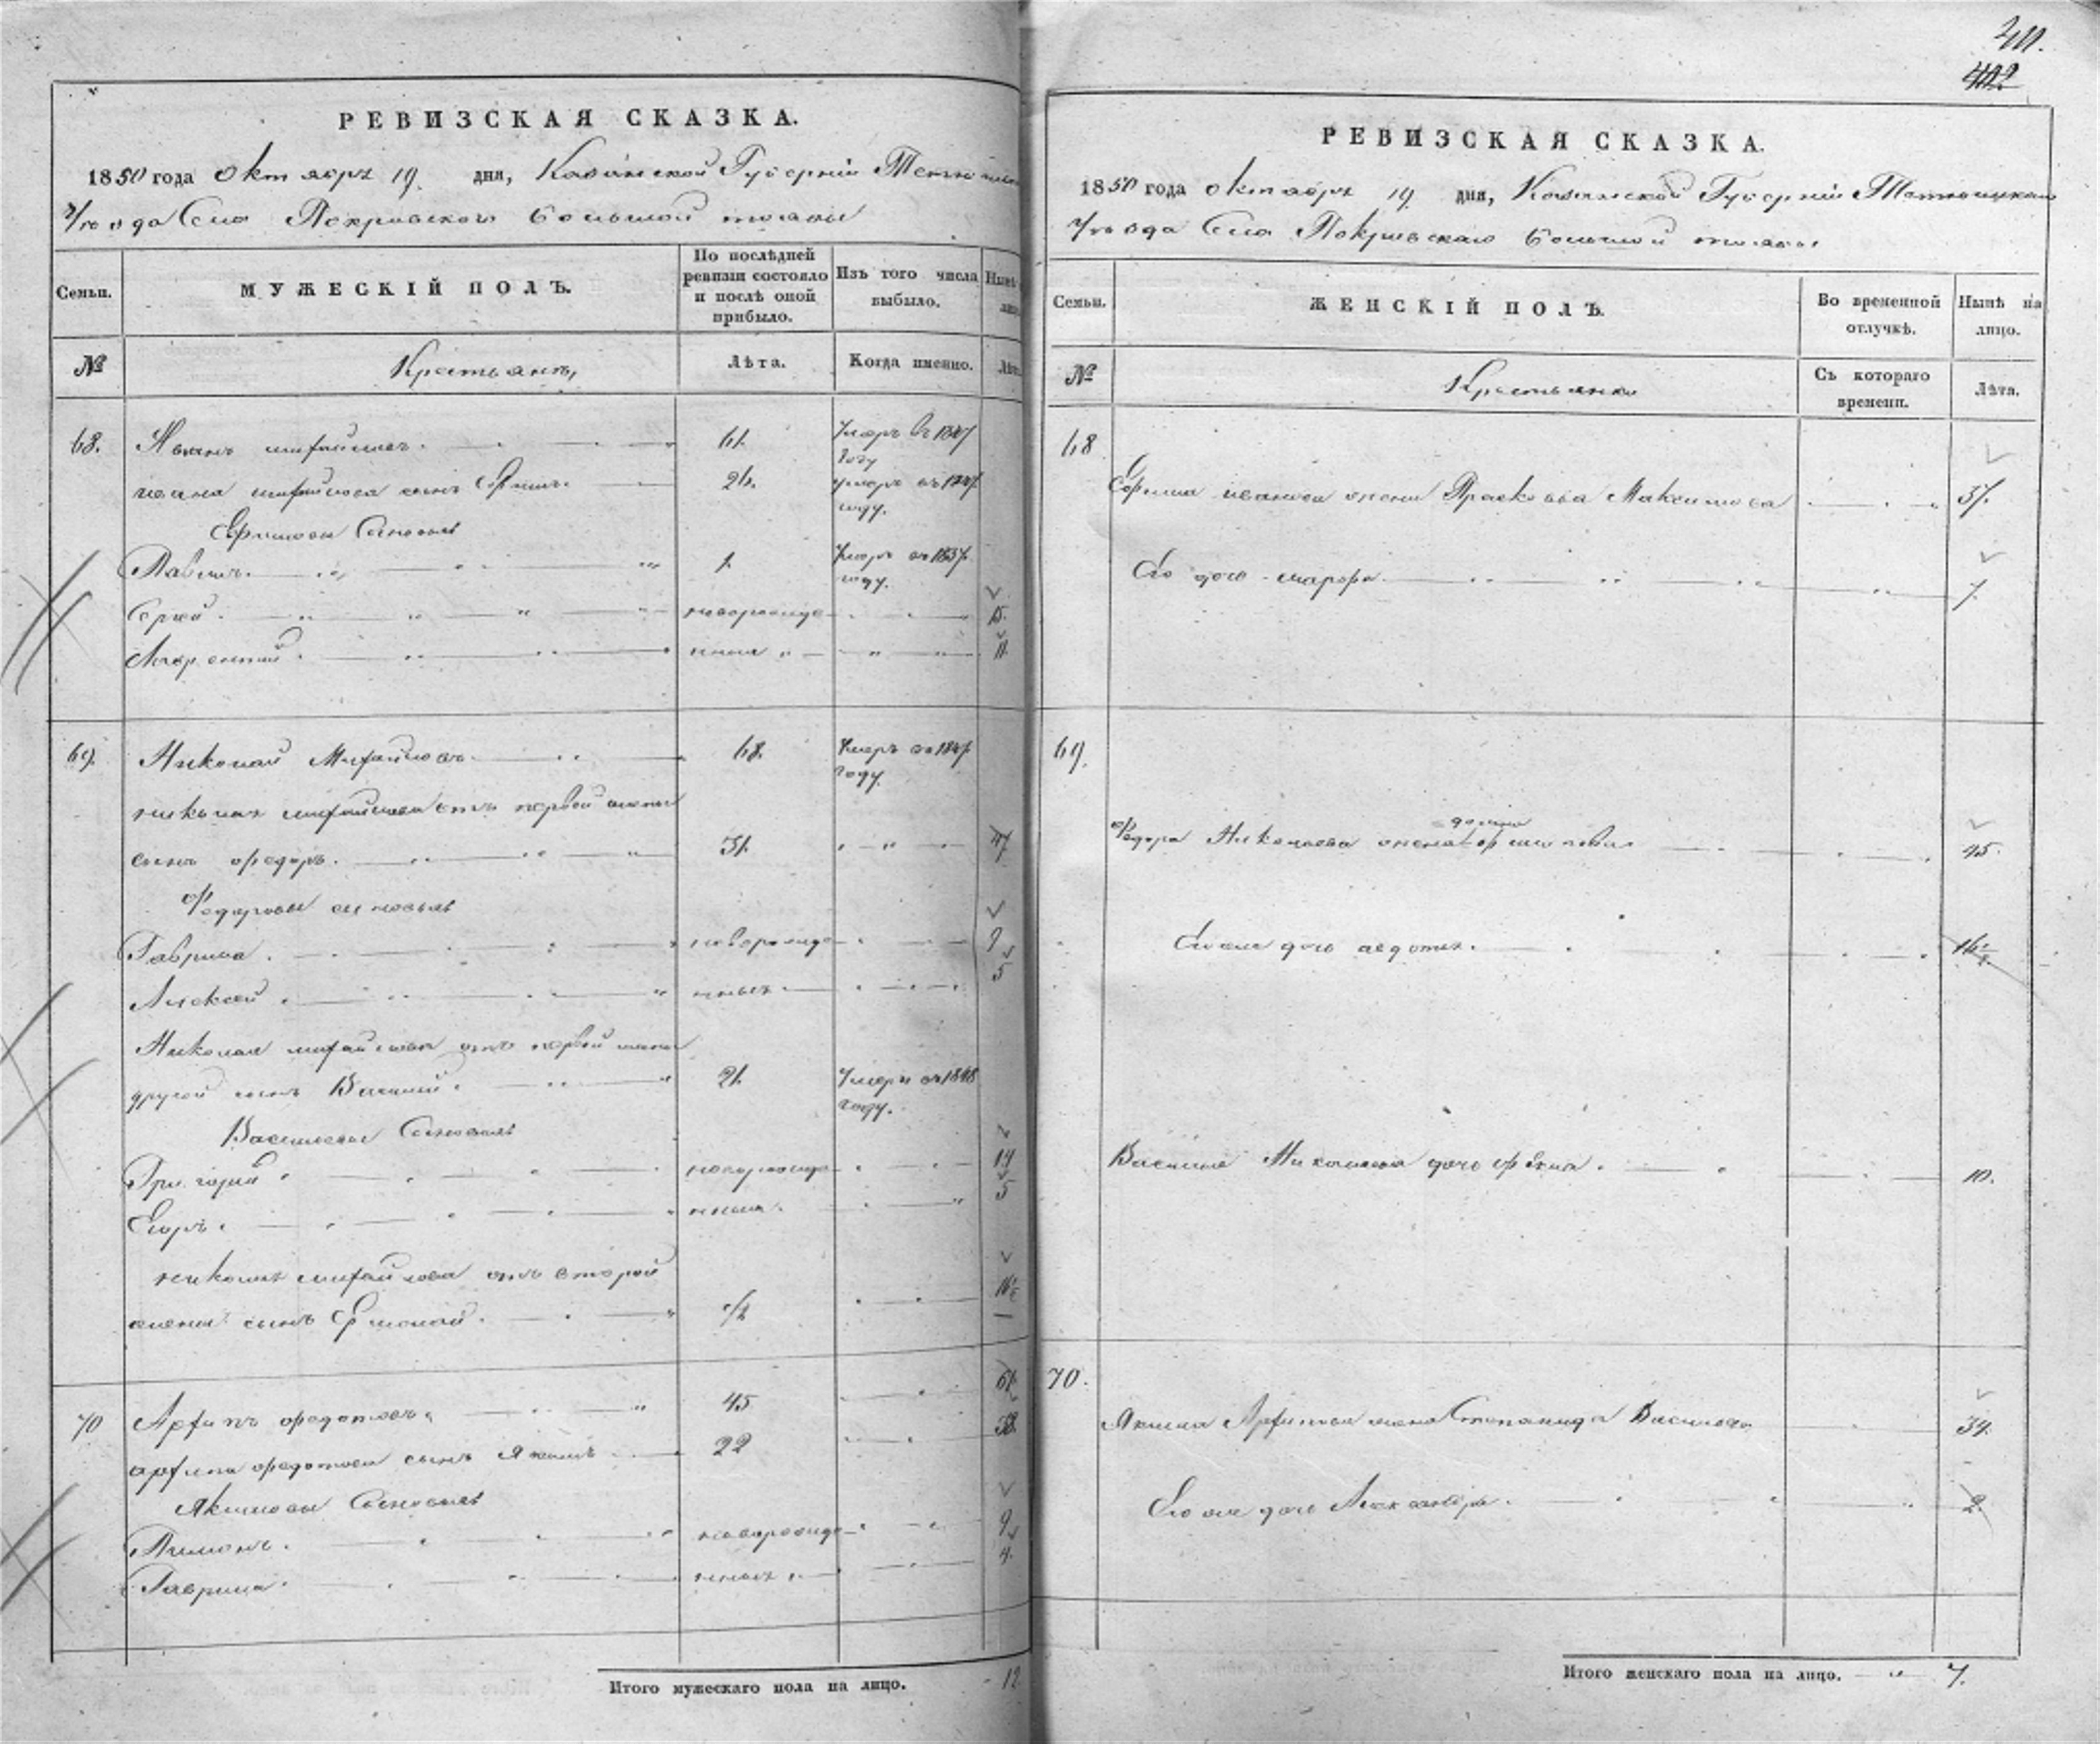 РЕВИЗСКАЯ СКАЗКА.
1850 года октября 19. дня, Казанской Губерніи
уезда Села Покровского большой
Семьи.
МУЖЕСКІЙ ПОЛЪ.
По послѣдней ревизіи состояло и послѣ оной прибыло.
Изъ того числа выбыло.
№
Крестьянъ,
Лѣта.
Когда именно.
68.
Иванъ михайловъ
61.
Умеръ въ 1847 году
ивана михайлова сынъ Ефимъ
26.
умеръ въ году.
Ефимовы Сыновья
Павелъ
1.
Умеръ въ 1837 году.
Сергей
новорожде
15.
Лаврентий
нныя
11.
69.
Николай Михайловъ
68.
Умеръ въ 1847 году
николая михайлова отъ первой жены
сынъ федоръ.
31.
47
Федоровы сыновья
Гаврила
новорожде
9
Алексей
нныя
5
Николая михайлова отъ первой жены
другой сынъ Василий
21.
Умеръ въ 1848 году.
Васильевы Сыновья
Григорий
новорожде
14
Егоръ
нныя
5
николая михайлова отъ второй
жены сынъ Ермолай
1/2
16 1/2
70
Архипъ федотовъ
45
61.
архипа федотова сынъ Якимъ
22
38.
Якимовы Сыновья
Пимонъ
новорожде
9
Гаврила
нныя
4.
Итого мужескаго пола на лицо.
12
411.
402
РЕВИЗСКАЯ СКАЗКА.
1850 года октября 19 дня, Казанской Губерніи
уезда Села Покровскаго большой
Семьи.
ЖЕНСКІЙ ПОЛЪ.
Во временной отлучкѣ.
Нынѣ на лицо.
№
Крестьянки
Съ котораго времени.
Лѣта.
68
Ефима иванова жена Прасковья Максимова
37.
Его дочь марфа
7.
69.
Федора Николаева жена
45.
Его же дочь авдотья
16 1/2
Василия Николаева дочь
10.
70.
Якима Архипова жена Степанида Васильева
39.
Его же дочь Александра
2.
Итого женскаго пола на лицо.
7.